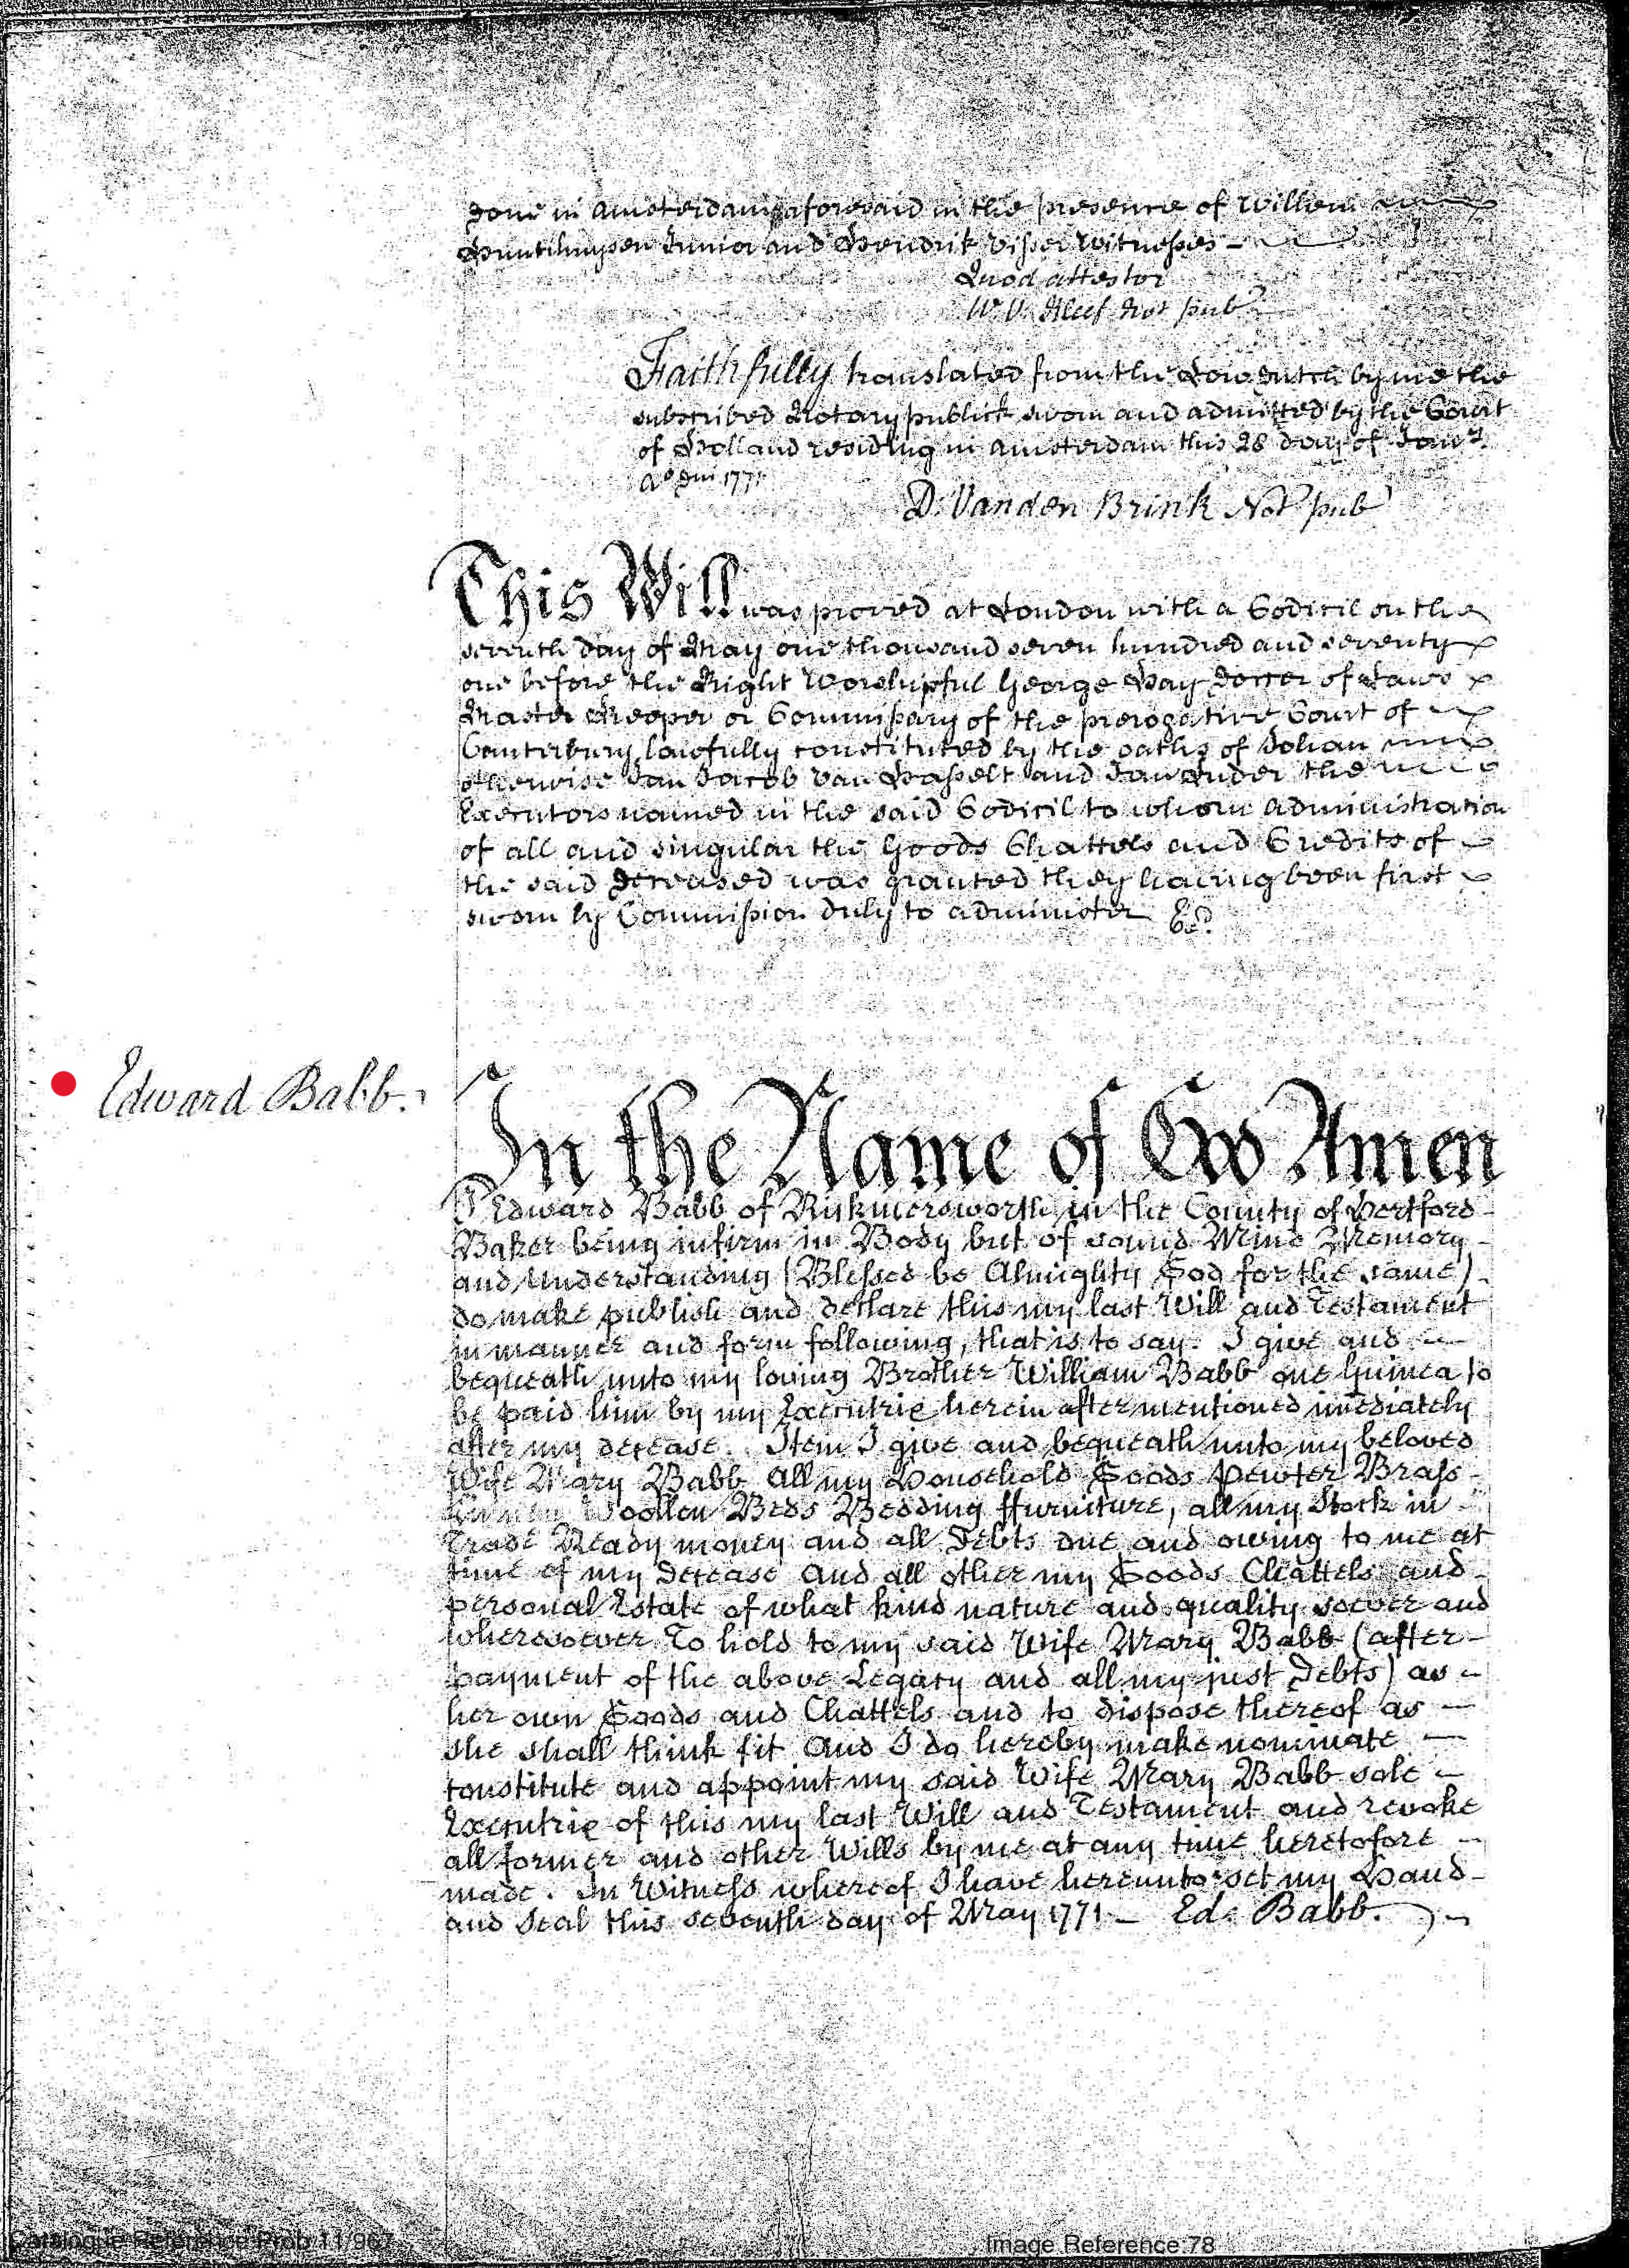 done in Amsterdam aforesaid in the presence of Willem
Junior and Hendrik Visser Witnesses
Quod attestor
W. V. Kleef Not pub
Faithfully translated from the Low Dutch by me the
subscribed Notary publick sworn and admitted by the Court
of Holland residing in Amsterdam this 28 day of Janry
Ao Dni 1771
D. Vanden Brink Not pub
This Will was proved at London with a Codicil on the
seventh day of May one thousand seven hundred and seventy
one before the Right Worshipful George Hay Doctor of Laws
Master Keeper or Commissary of the prerogative Court of
Canterbury lawfully constituted by the oaths of Johan
otherwise Jan Jacob Van Hasselt and Jan the
Executors named in the said Codicil to whom administration
of all and singular the Goods Chattels and Credits of
the said deceased was granted they having been first
sworn by Commission duly to administer Ex.d
Edward Babb.
In the Name of God Amen
I Edward Babb of Rickmersworth in the County of Hertford
Baker being infirm in Body but of sound Mind Memory
and Understanding (Blessed be Almighty God for the same)
do make publish and declare this my last Will and Testament
in manner and form following, that is to say. I give and
bequeath unto my loving Brother William Babb one Guinea to
be paid him by my Executrix herein after mentioned imediately
after my decease. Item I give and bequeath unto my beloved
Wife Mary Babb all my Household Goods Pewter Brass
Woollen Beds Bedding ffurniture, all my Stock in
Trade Ready money and all Debts due and owing to me at
time of my Decease and all other my Goods Chattels and
personal Estate of what kind nature and quality soever and
wheresoever To hold to my said Wife Mary Babb (after
payment of the above Legacy and all my just Debts) as
her own Goods and Chattels and to dispose thereof as
she shall think fit And I do hereby make nominate
constitute and appoint my said Wife Mary Babb sole
Executrix of this my last Will and Testament and revoke
all former and other Wills by me at any time heretofore
made. In Witness whereof I have hereunto set my Hand
and Seal this seventh day of May 1771 Ed. Babb.
Catalogue Reference:Prob 11/967
Image Reference:78